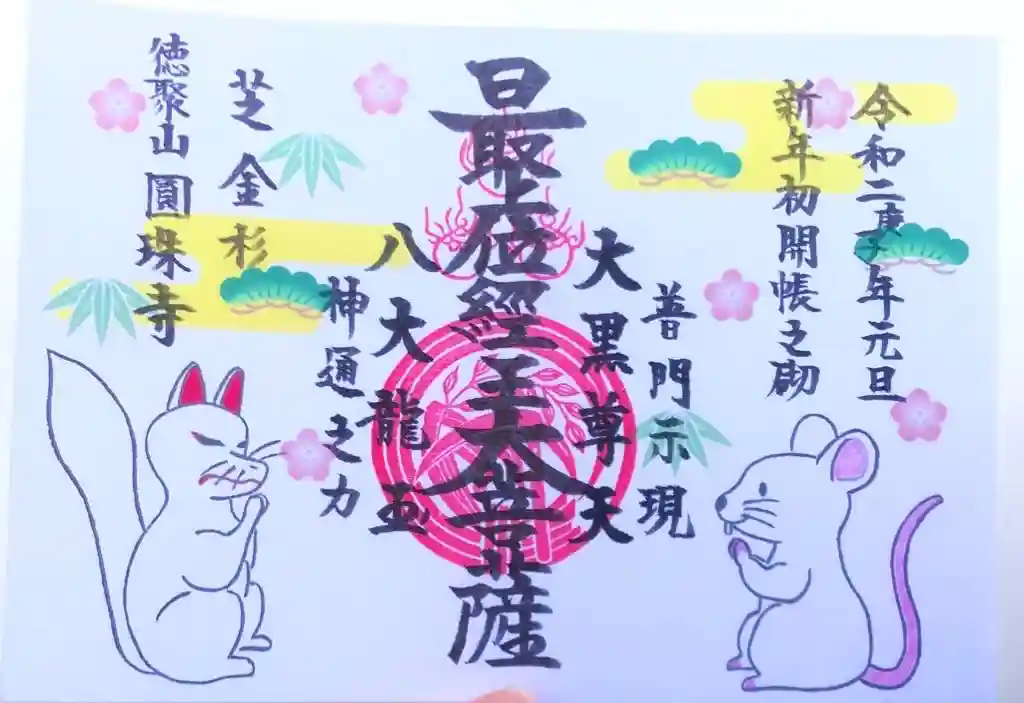 令和二庚子年元旦
新年初開帳之砌
普門示現
大黒尊天
最上位經王大菩薩
八大龍王
神通之力
芝金杉
徳聚山圓珠寺